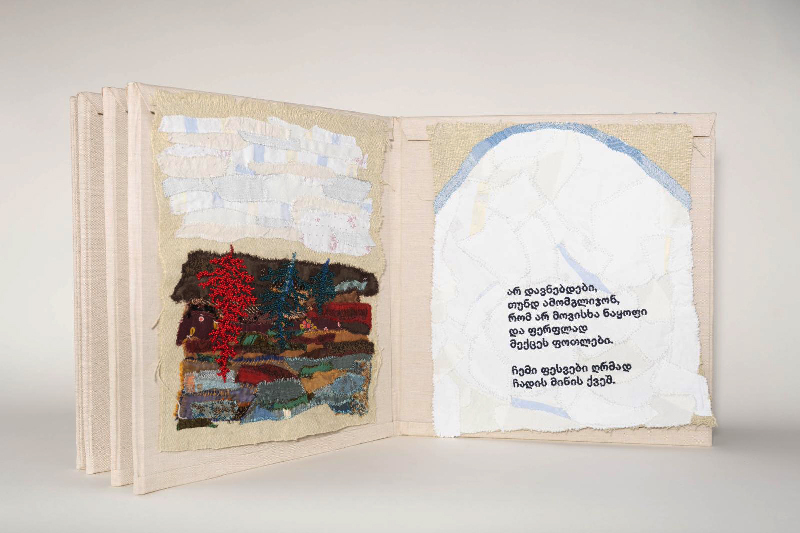 არ დავნებდები,
თუნდ ამომგლიჯონ,
რომ არ მოვისხა ნაყოფი
და ფერფლად
მექცეს ფოთლები.
ჩემი ფესვები ღრმად
ჩადის მიწის ქვეშ.